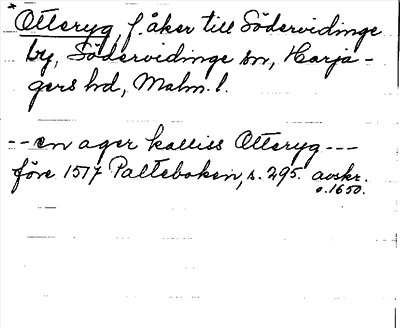 *Otteryg, f åker till Södervidinge
by, Södervidinge sn, Harja-
gers hd, Malm. l.
-- en ager kalliss Otteryg ---
före 1517 Palteboken, s. 295. avskr.
o. 1650.